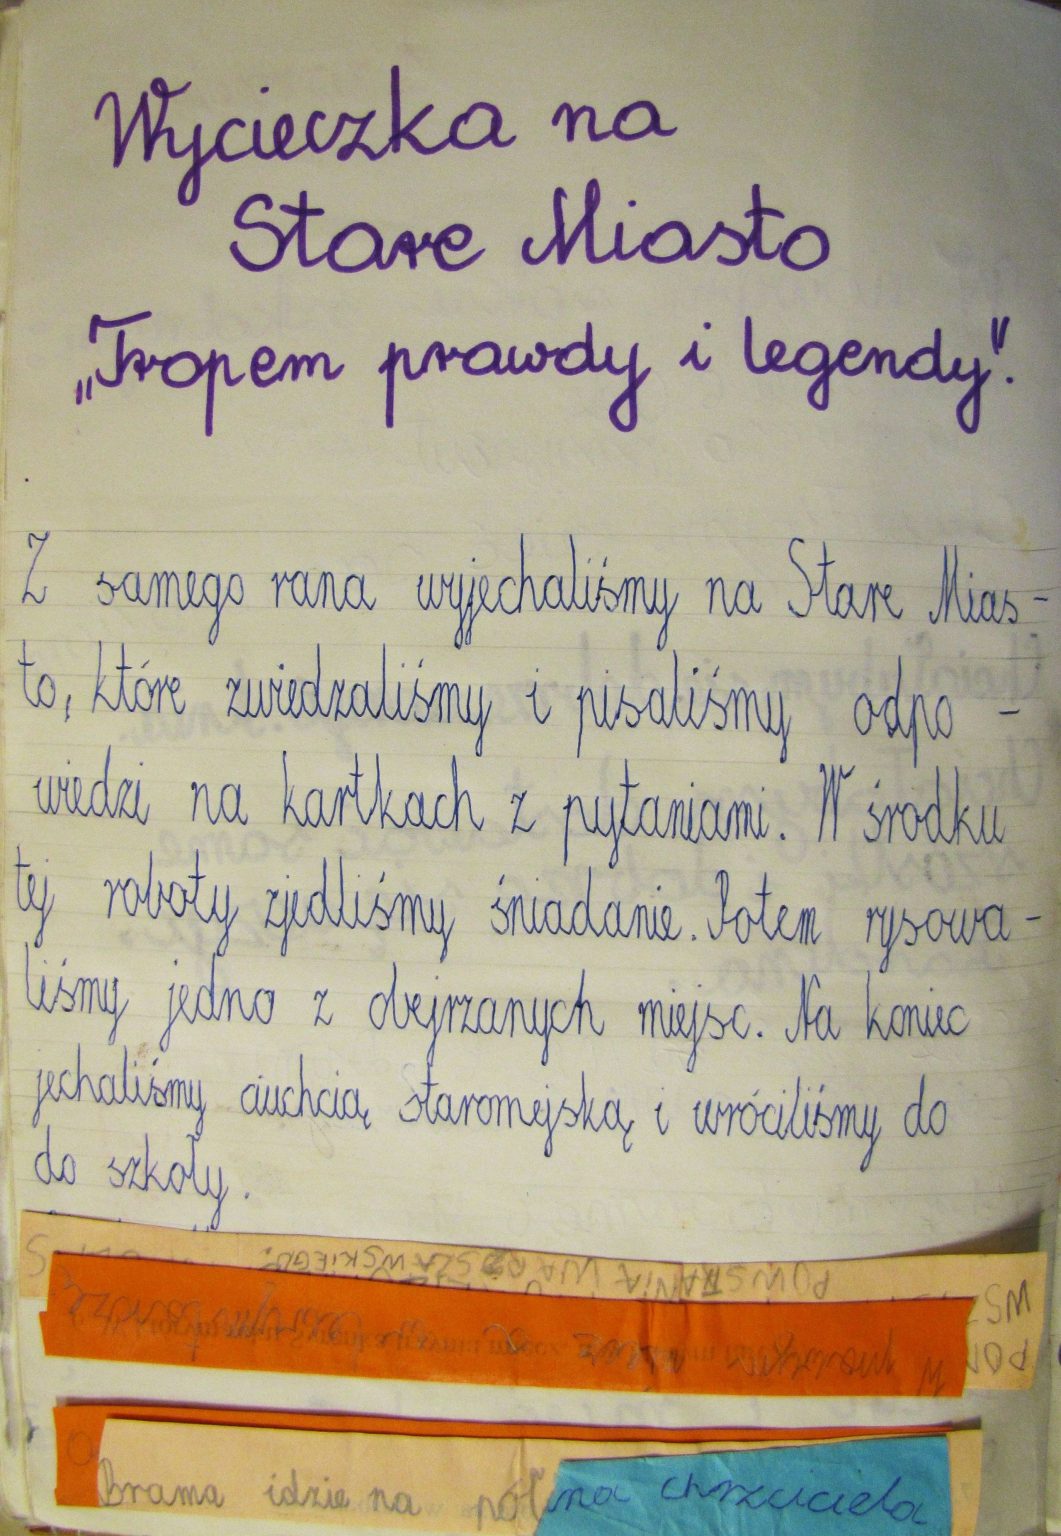 Wycieczka na
Stare Miasto
„Tropem prawdy i legendy".
Z samego rana wyjechaliśmy na Stare Mias-
to, które zwiedzaliśmy i pisaliśmy odpo-
wiedzi na kartkach z pytaniami. W środku
tej roboty zjedliśmy śniadanie. Potem rysowa-
liśmy jedno z obejrzanych miejsc. Na koniec
jechaliśmy ciuchcią staromejską i wróciliśmy do
do szkoły.
POWSTANIA WARSZAWSKIEGO?
Brama idzie na
chrzciciela